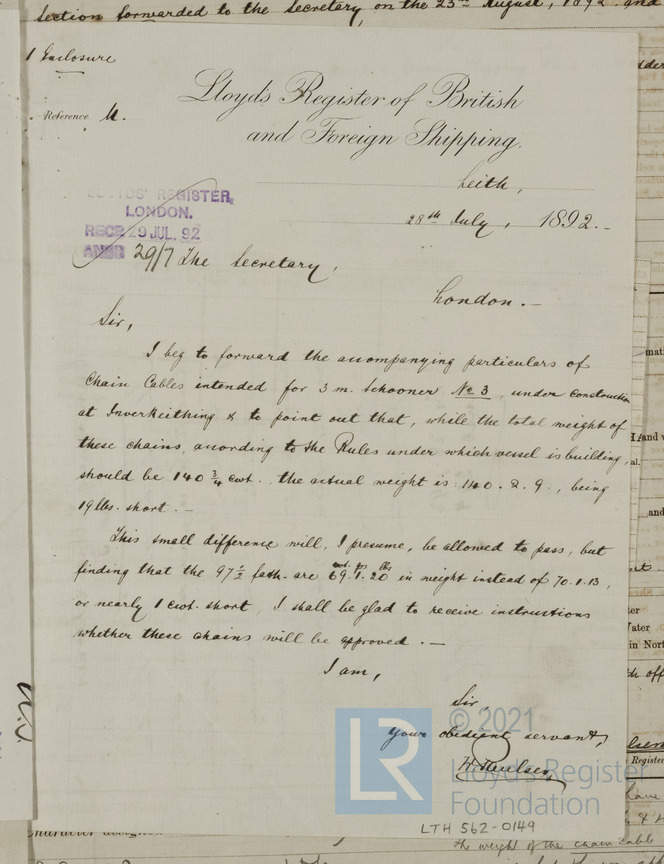 section forwarded to the Secretary, on the 23rd August, 1892. and
1 Enclosure
Lloyds Register of British
and Foreign Shipping.
Reference M.
Leith,
28th July, 1892.-
LLOYDS' REGISTER,
LONDON.
RECD 29 JUL. 92
ANSD 29/7
The Secretary,
London.-
Sir,
I beg to forward the accompanying particulars of
Chain Cables intended for 3 m. Schooner No 3, under construction
at Inverkeithing & to point out that, while the total weight of
these chains, according to the Rules under which vessel is building,
should be 140 3/4 cwt., the actual weight is 140.2.9., being
19 lbs. short.-
This small difference will, I presume, be allowed to pass, but
finding that the 97 1/2 fath. are 69.1.20 in weight instead of 70.1.13,
cwt. qrs lbs
or nearly 1 cwt. short, I shall be glad to receive instructions
whether these chains will be approved.-
I am,
Sir,
Your obedient servant,
LR
© 2021
Lloyd's Register
Foundation
LTH 562-0149
the weight of the chain cable